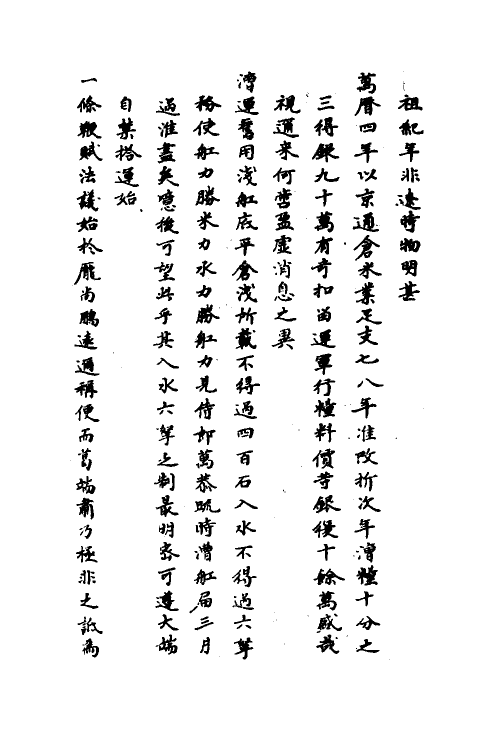 祖紀年非遠時物明甚
萬曆四年以京通倉米業足支七八年准改折次年漕糧十分之
三得銀九十萬有奇扣留運軍行糧料價等銀復十餘萬盛哉
視通來何啻盈虛消息之異
漕運舊用淺船底平倉淺所載不得過四百石入水不得過六拏
務使船力勝米力水力勝船力見侍郎萬恭疏時漕船屆三月
過淮盡矣嗟後可望此乎其入水六拏之制最明密可遵大端
自禁搭運始
一條鞭賦法議始於龐尚鵬遠邇稱便而葛端肅乃極非之詆為